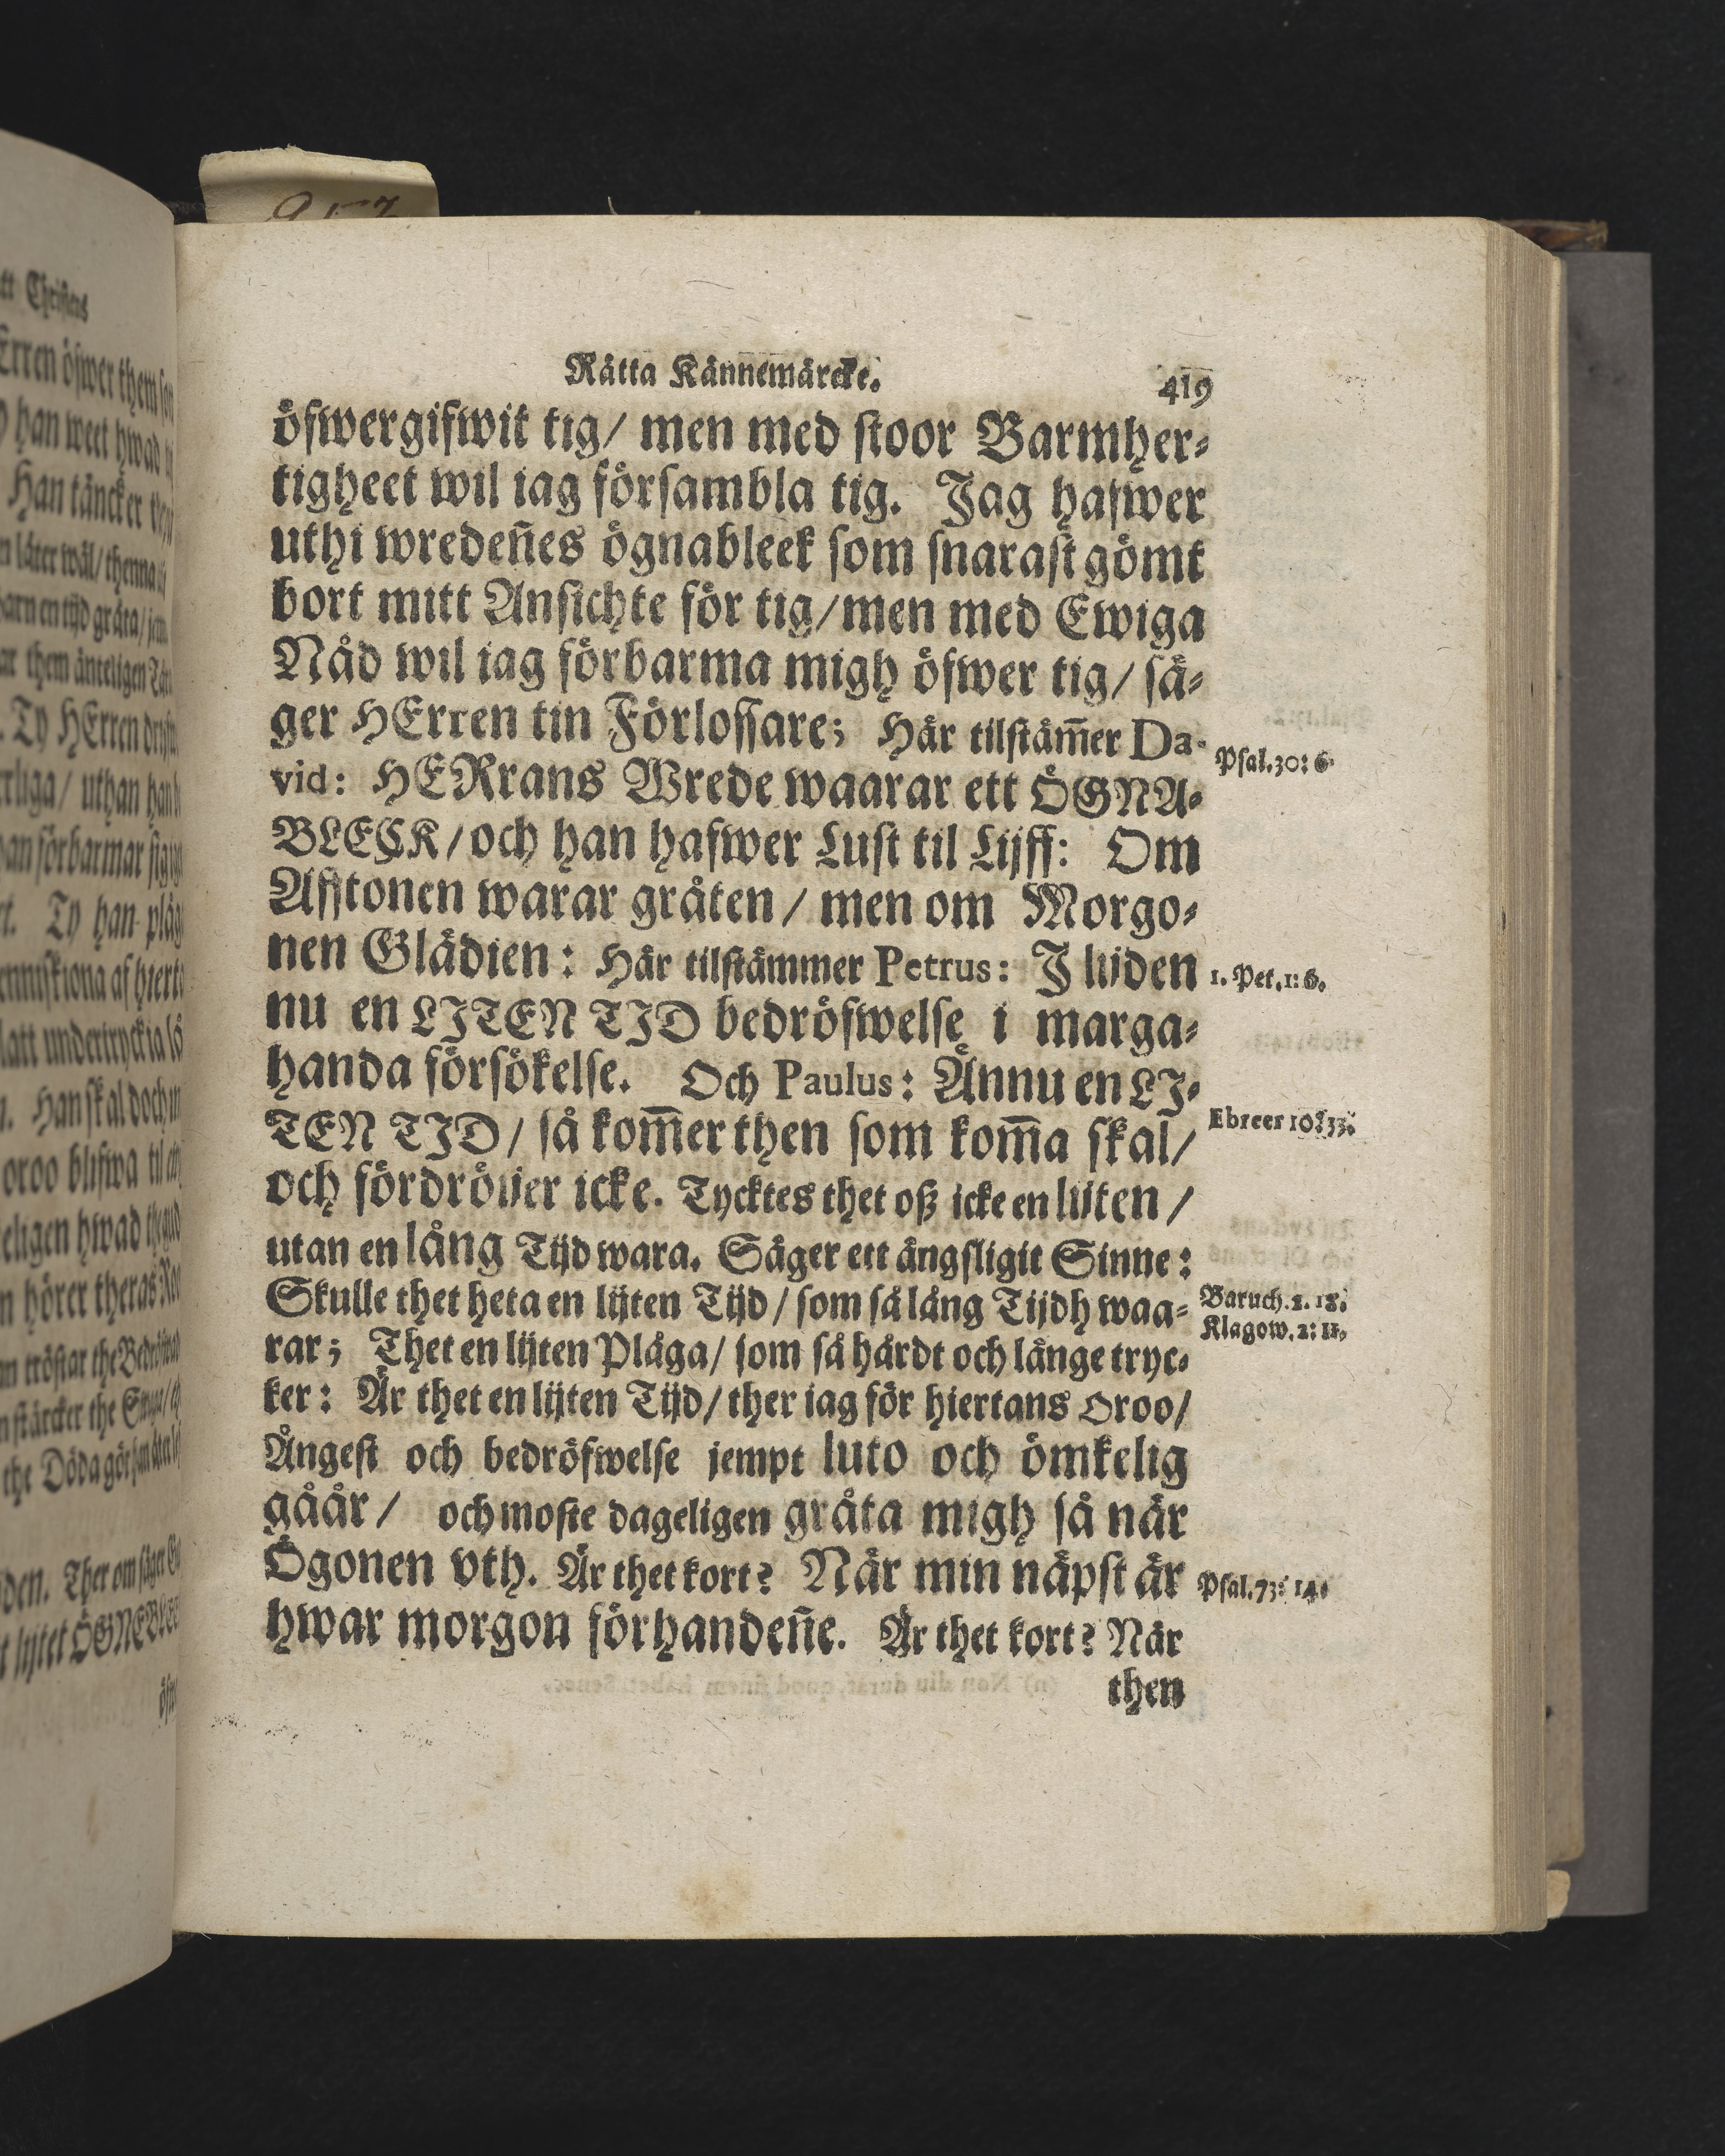 Rätta Kännemärcke. 419
öfwergifwit tig/ men med stoor Barmher-
tigheet wil iag försambla tig. Jag hafwer
uthi wredeñes ögnableek som snarast gömt
bort mitt Ansichte för tig/men med Ewiga
Nåd wil iag förbarma migh öfwer tig/ sä-
ger HErren tin Förlossare; Här tilstäm̃er Da-
Psal.30: 6.
vid: HERrans Wrede waarar ett ÖGNA-
BLECK/och han hafwer Lust til Lijff: Om
Afftonen warar gråten/ men om Morgo-
nen Glädien: Här tilstämmer Petrus: J lijden
1. Pet.1: 6.
nu en LJTEN TJD bedröfwelse i marga-
handa försökelse. Och Paulus: Ännu en LJ-
TEN TJD/ så kom̃er then som kom̃a skal/
Ebreer 10: 33.
och fördröijer icke. Tycktes thet oß icke en lijten/
utan en lång Tijd wara. Säger ett ängsligit Sinne:
Skulle thet heta en lijten Tijd/ som så lång Tijdh waa-
Baruch.2. 18.
Klagow.2: 11.
rar; Thet en lijten Plåga/ som så hårdt och länge tryc-
ker: Är thet en lijten Tijd/ ther iag för hiertans oroo/
Ångest och bedröfwelse jempt luto och ömkelig
gåår/ och moste dageligen gråta migh så när
Ögonen vth. Är thet kort? När min näpst är
Psal.73: 14.
hwar morgon förhandeñe. Är thet kort? När
then